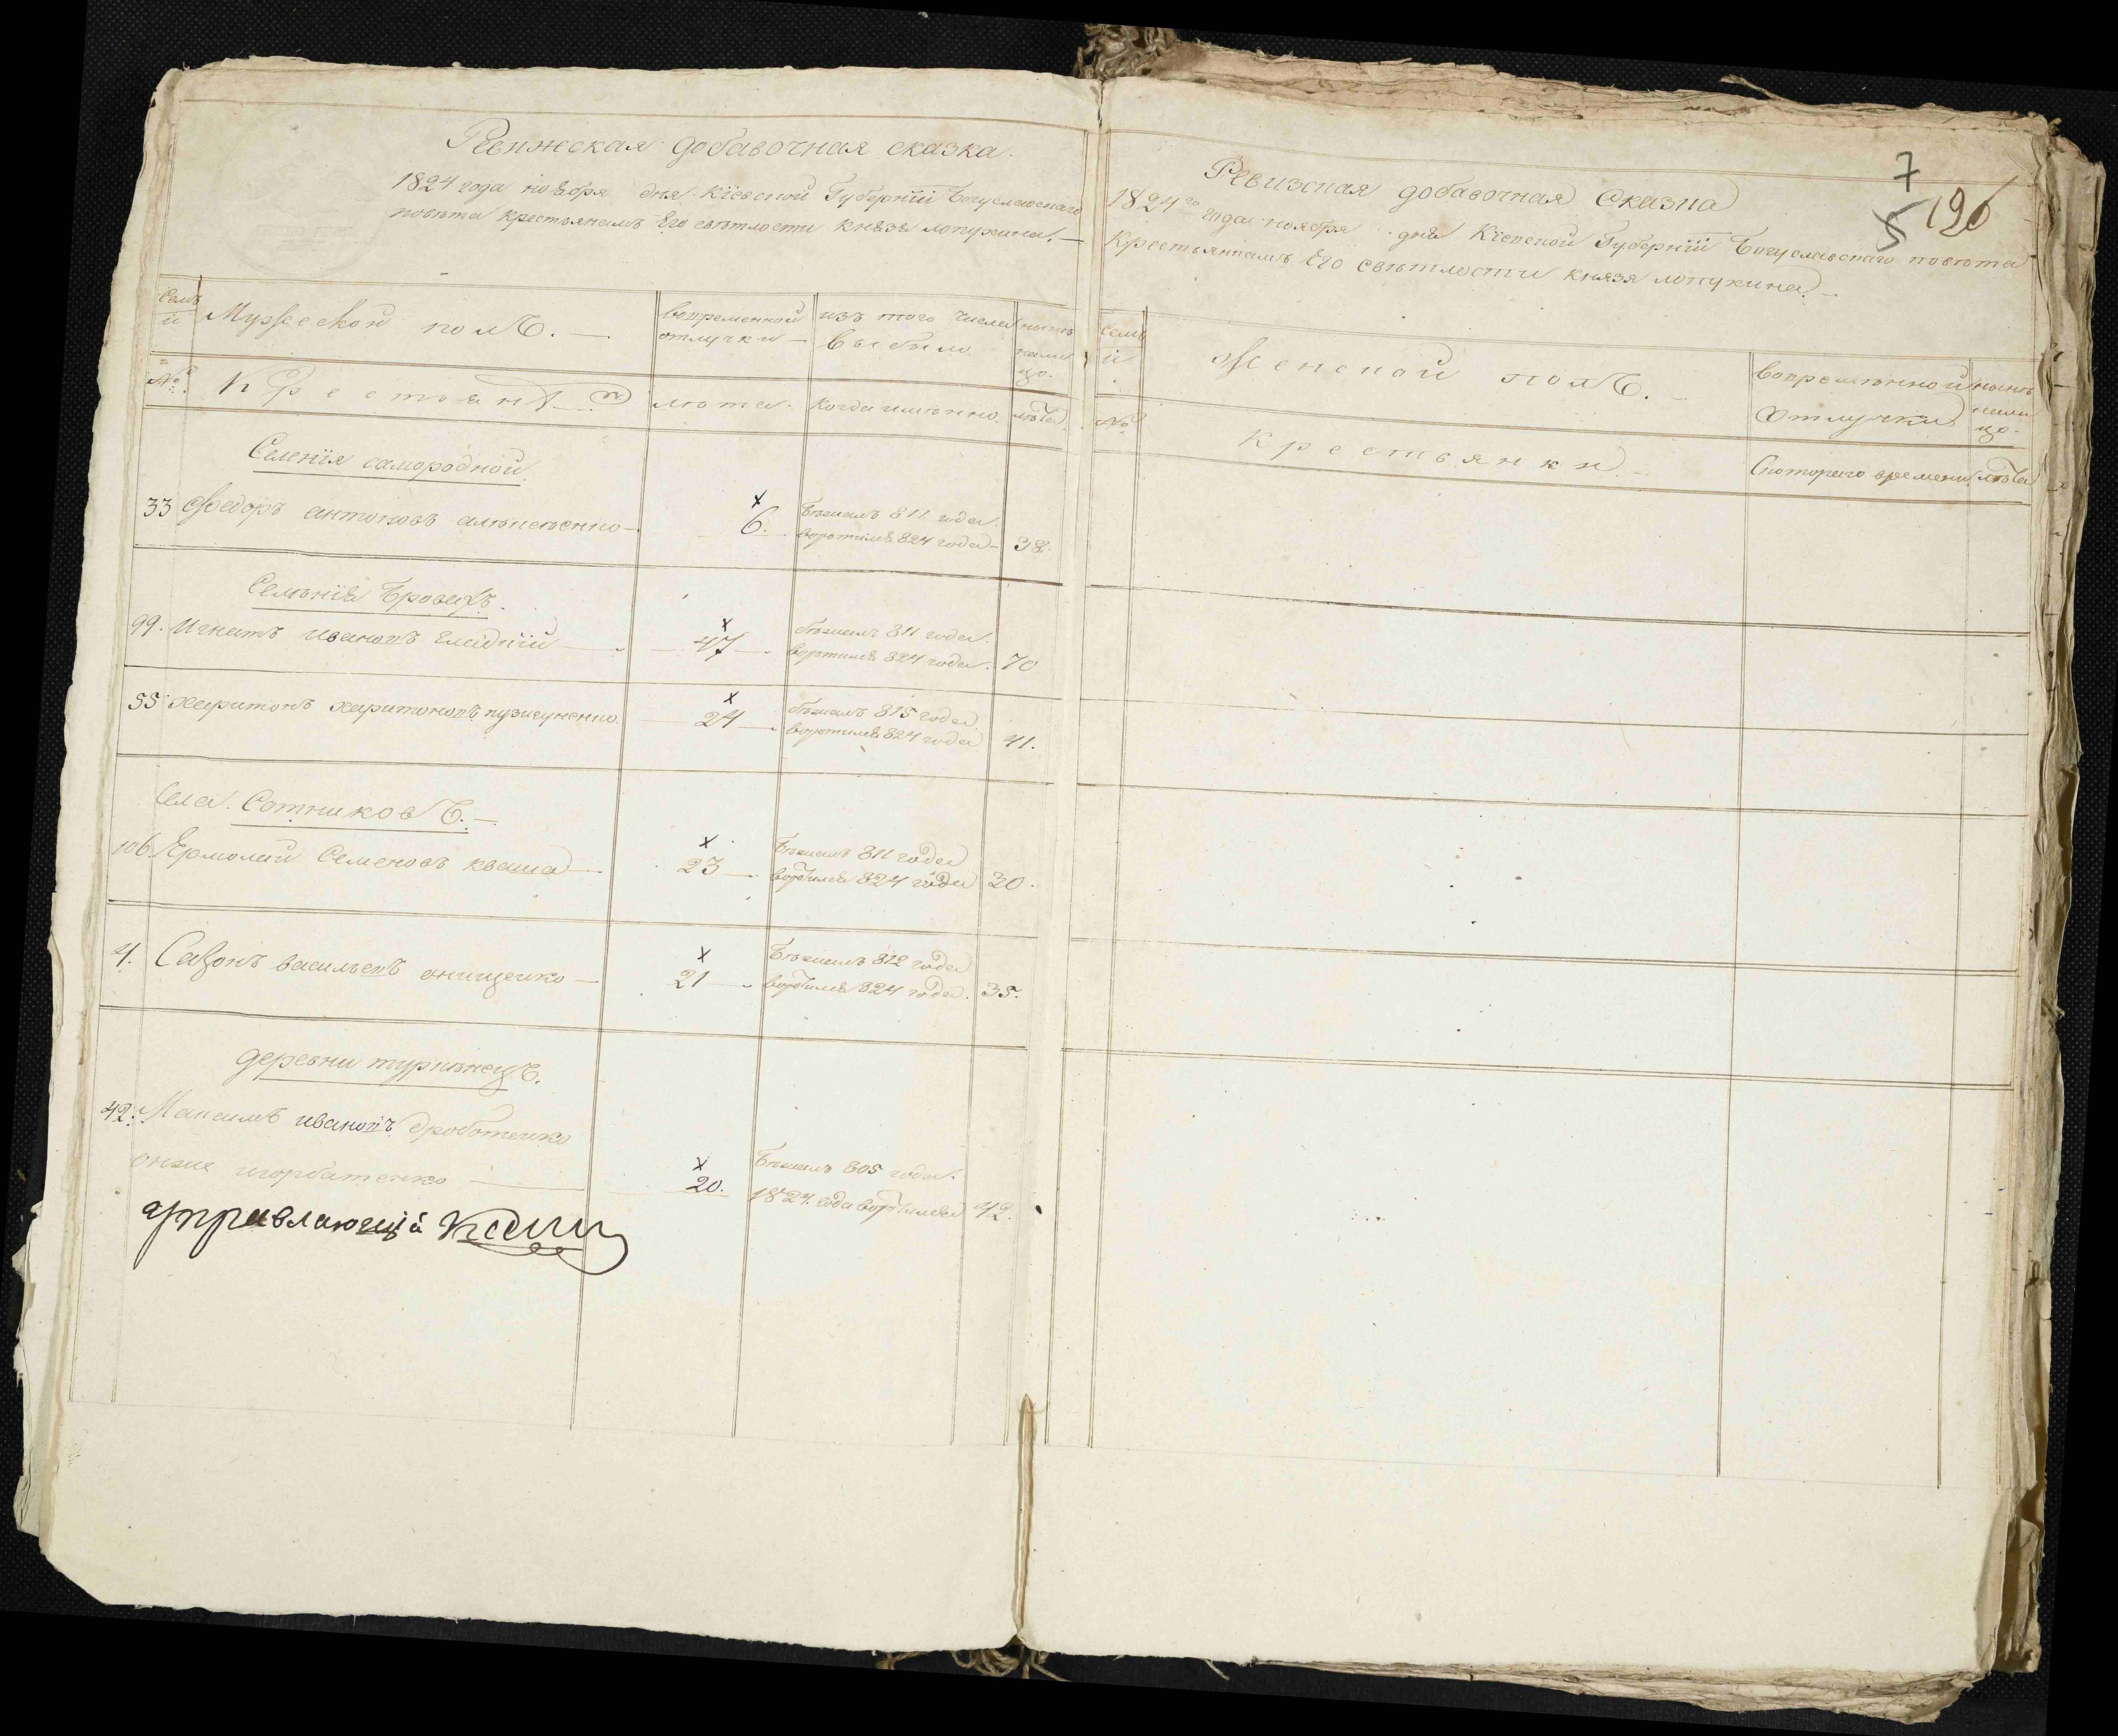 Ревижская добавочная сказка.
1824 года ноября дня Кіевской Губерніи Богуславскаго
повѣта крестьянамъ Его свѣтлости князя лопухина. —
Семь
и
Мужеской полъ. —
вовременной
отлучки —
изъ того числа
выбыло
нынѣ
нали
цо.
№
Крестьянѣ
лѣта.
когда имѣнно.
лѣта
Селенія самородной
33 Федоръ антоновъ алексѣенко —
x
6.
Бѣжалъ 811 года.
воротился 824 года — 38.
Селѣнія Бровахъ.
99. Игнатъ ивановъ гладкій
x
47
бѣжалъ 811 года.
воротился 824 года. 70
55 харитонъ харитоновъ
x
24
бѣжалъ 815 года
воротился 824 года 41.
Села. Сотниковъ. —
106. Ермолай Семеновъ кваша —
x
23
Бѣжалъ 811 года
воротился 824 года 30.
4. Савонъ васильевъ онищенко —
x
21
Бѣжалъ 812 года
воротился 824 года. 35.
деревни турянецъ.
42. Мапаилъ ивановъ дроботенко
онже игорбатенко
x
20.
Бѣжалъ 805 года.
1824. года воротился 42.
управляющій
7
5 196
Ревизская добавочная Сказка
1824го года ноября дня Кіевской Губерніи Богуславскаго повѣта
Крестьянкамъ Его свѣтлости князя лопухина. —
семь
и
Женской полъ. —
вовремѣнной
Отлучки
нынѣ
нали
цо.
№
Крестьянки —
Скотораго времени
лѣта